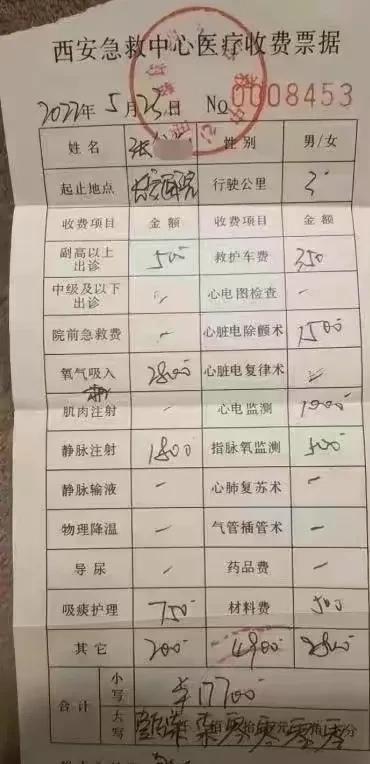 西安急救中心医疗收费票据
2022年5月23日 No 0008453
姓名 张 性别 男/女
起止地点 医院 行驶公里 3
收费项目 金额 收费项目 金额
副高以上出诊 500 救护车费 350
中级及以下出诊 心电图检查 -
院前急救费 - 心脏电除颤术 1500
氧气吸入 2800 心脏电复律术
肌肉注射 - 心电监测 1000
静脉注射 1800 指脉氧监测 500
静脉输液 - 心肺复苏术 -
物理降温 - 气管插管术 -
导尿 - 药品费 -
吸痰护理 750 材料费 500
其它 200 4900
合计 小写 ¥17700
大写 柒 零 拾 零 元 零 零 分